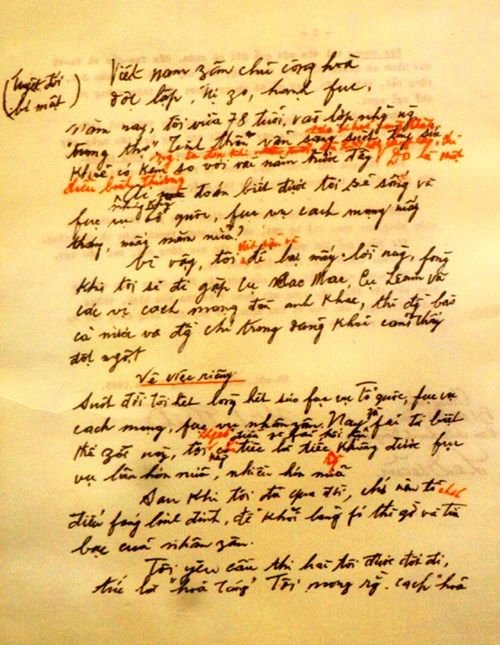 (Tuyệt đối
bí mật)
Việt nam zân chủ cộng hoà
độc lập, tự zo, hạnh fuc,
Năm nay, tôi vừa 78 tuổi, vào lớp những ng.
"trung thọ" Tinh thần vẫn sáng suốt, tuy sức
khoẻ có kém so với vài năm trước đây. đó là một
điều bình thường.
Ai mà đoán biết được tôi sẽ sống và
fục vụ tổ quốc, fục vụ cách mạng mấy
tháng, mấy năm nữa?
Vì vậy, tôi để lại mấy lời này, fòng
khi tôi sẽ đi gặp cụ Các Mác, Cụ Lênin và
các vị cách mạng đàn anh khác, thì đg bào
cả nước và đg chí trong đảng khỏi cảm thấy
đột ngột.
Về việc riêng
Suốt đời tôi hết lòng hết sức fục vụ Tổ quốc, fục vụ
cách mạng, fục vụ nhân zân. Nay zù fải từ biệt
thế zới này, tôi không có điều gì fải hối hận,
chỉ tiếc là tiếc không được fục
vụ lâu hơn nữa, nhiều hơn nữa.
Sau khi tôi đã qua đời, chớ nên tổ chức
điếu fúng linh đình, để khỏi lãng fí thì giờ và tiền
bạc của nhân zân.
Tôi yêu cầu thi hài tôi được đốt đi,
tức là "hoả táng". Tôi mong rằng cách "hoả